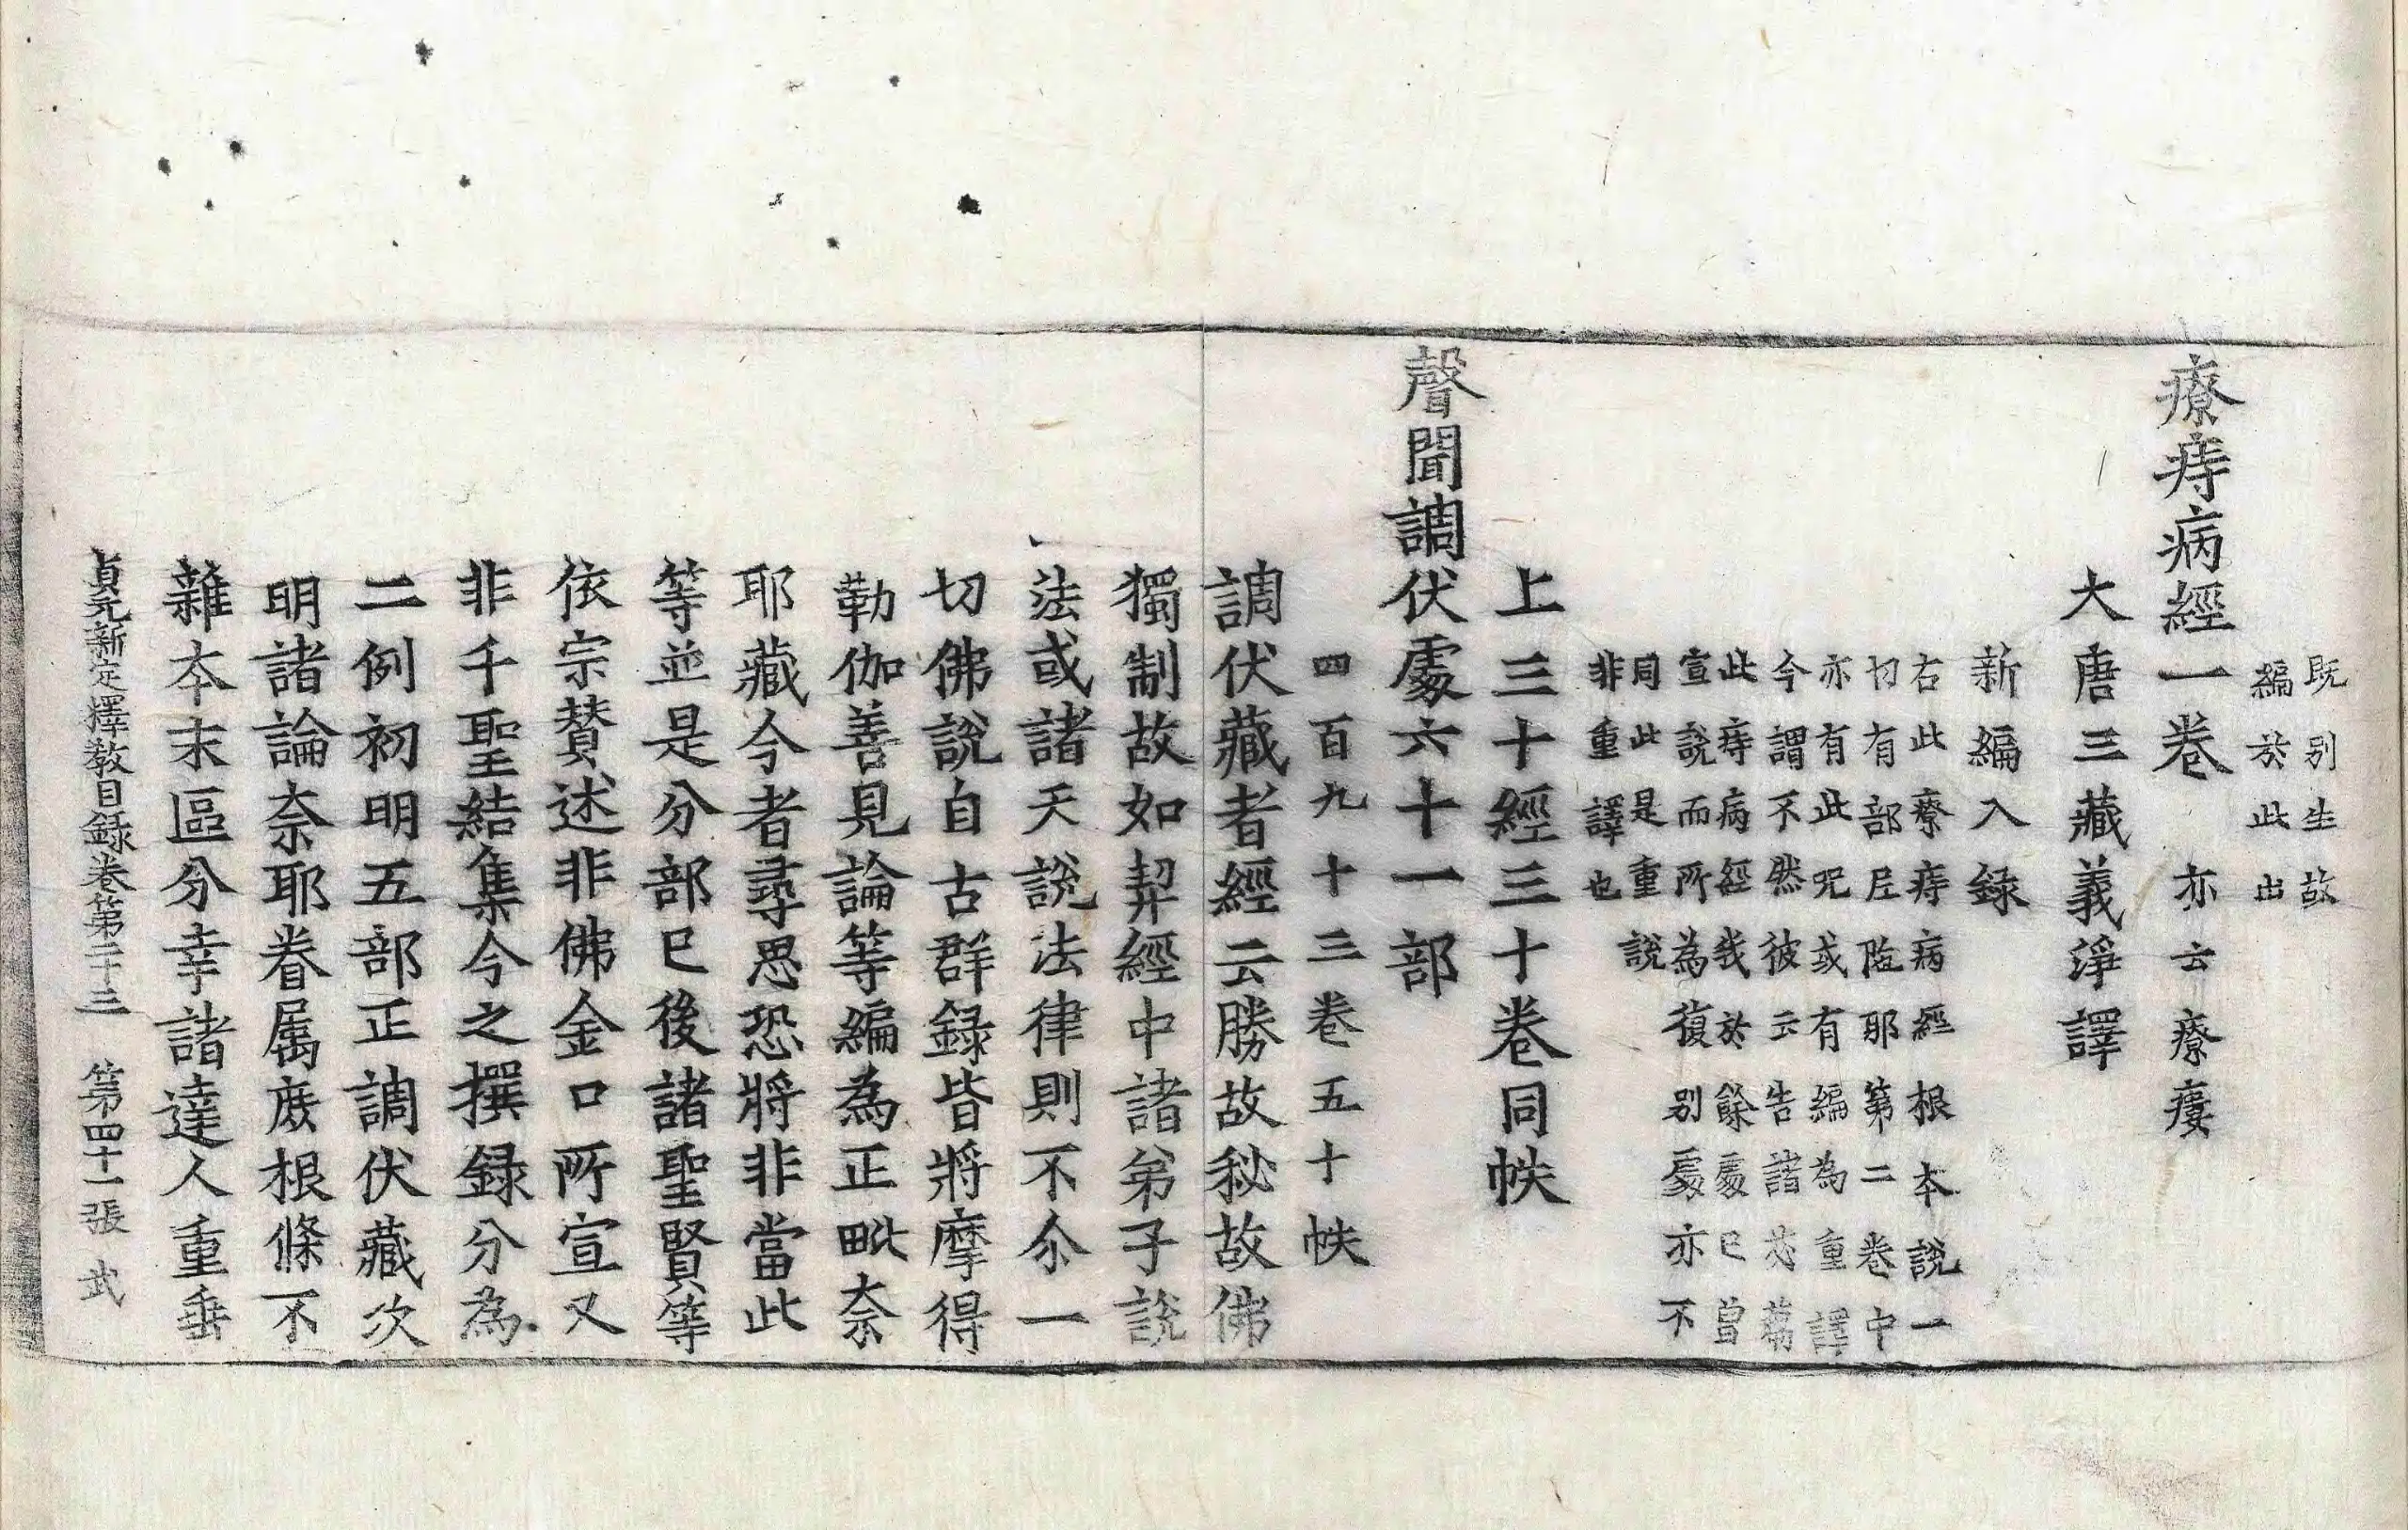 既別生故
編於此出
療痔病經一卷 亦云療痿
大唐三藏義淨譯
新編入錄
右此療痔病經根本說一
切有部尼陁耶第二卷中
亦有此呪或有編為重譯
今謂不然彼云告諸苾蒭
此痔病經我於餘處已曾
宣說而所為復別處亦不
同此是重說
非重譯也
上三十經三十卷同帙
聲聞調伏處六十一部
四百九十三卷五十帙
調伏藏者經云勝故秘故佛
獨制故如契經中諸弟子說
法或諸天說法律則不尒一
切佛說自古群錄皆將摩得
勒伽善見論等編為正毗奈
耶藏今者尋思恐將非當此
等並是分部已後諸聖賢等
依宗賛述非佛金口所宣又
非千聖結集今之撰錄分為
二例初明五部正調伏藏次
明諸論奈耶眷属庶根條不
雜本末區分幸諸達人重垂
貞元新定擇教目錄卷第二十三 第四十一張 武